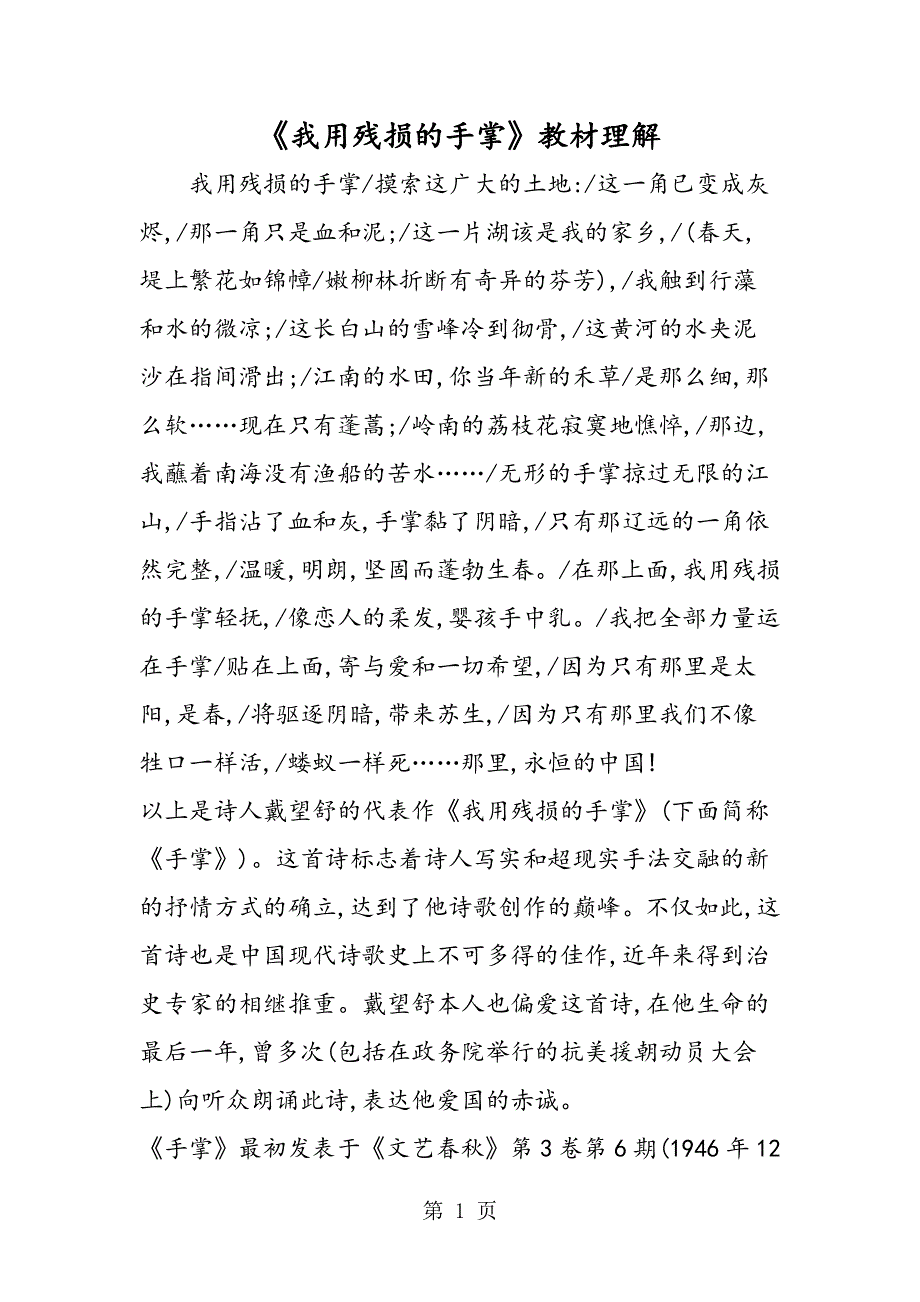 《我用残损的手掌》教材理解
我用残损的手掌/摸索这广大的土地:/这一角已变成灰
烬,/那一角只是血和泥;/这一片湖该是我的家乡,/(春天,
堤上繁花如锦幛/嫩柳林折断有奇异的芬芳),/我触到荇藻
和水的微凉;/这长白山的雪峰冷到彻骨,/这黄河的水夹泥
沙在指间滑出;/江南的水田,你当年新的禾草/是那么细,那
么软……现在只有蓬蒿;/岭南的荔枝花寂寞地憔悴,/那边,
我蘸着南海没有渔船的苦水……/无形的手掌掠过无限的江
山,/手指沾了血和灰,手掌黏了阴暗,/只有那辽远的一角依
然完整,/温暖,明朗,坚固而蓬勃生春。/在那上面,我用残损
的手掌轻抚,/像恋人的柔发,婴孩手中乳。/我把全部力量运
在手掌/贴在上面,寄与爱和一切希望,/因为只有那里是太
阳,是春,/将驱逐阴暗,带来苏生,/因为只有那里我们不像
牲口一样活,/蝼蚁一样死……那里,永恒的中国!
以上是诗人戴望舒的代表作《我用残损的手掌》(下面简称
《手掌》)。这首诗标志着诗人写实和超现实手法交融的新
的抒情方式的确立,达到了他诗歌创作的巅峰。不仅如此,这
首诗也是中国现代诗歌史上不可多得的佳作,近年来得到治
史专家的相继推重。戴望舒本人也偏爱这首诗,在他生命的
最后一年,曾多次(包括在政务院举行的抗美援朝动员大会
上)向听众朗诵此诗,表达他爱国的赤诚。
《手掌》最初发表于《文艺春秋》第3卷第6期(1946年12
第 1 页